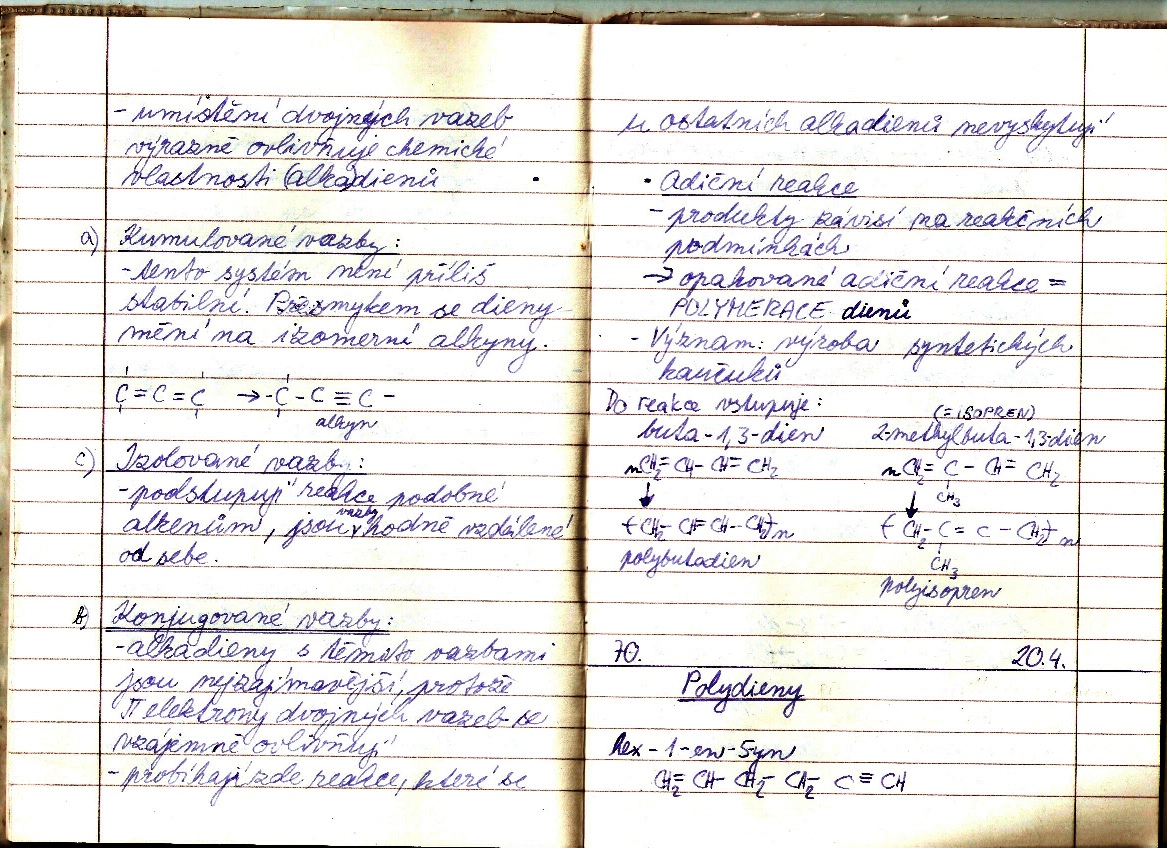 - umístění dvojných vazeb
výrazně ovlivňuje chemické
vlastnosti (alkadienů
a) Kumulované vazby:
- tento systém není příliš
stabilní. Přesmykem se dieny
mění na izomerní alkyny.
C = C = C → - C - C ≡ C -
alkyn
c) Izolované vazby:
- podstupují reakce podobné
alkenům, jsou vazby hodně vzdálené
od sebe.
b) Konjugované vazby:
- alkadieny s těmito vazbami
jsou nejzajímavější, protože
π elektrony dvojných vazeb se
vzájemně ovlivňují
- probíhají zde reakce, které se
u ostatních alkadienů nevyskytují
• Adiční reakce
- produkty závisí na reakčních
podmínkách
→ opakované adiční reakce =
POLYMERACE dienů
- Význam: výroba syntetických
kaučuků
Do reakce vstupuje: (= ISOPREN)
buta-1,3-dien 2-methylbuta-1,3-dien
nCH2 = CH - CH = CH2 nCH2 = C - CH = CH2
CH3
(CH2 - CH = CH - CH2)n (CH2 - C = C - CH2)n
polybutadien CH3
polyisopren
70. 20.4.
Polydieny
Hex - 1 - en - 5yn
CH2 = CH - CH2 - CH2 - C ≡ CH